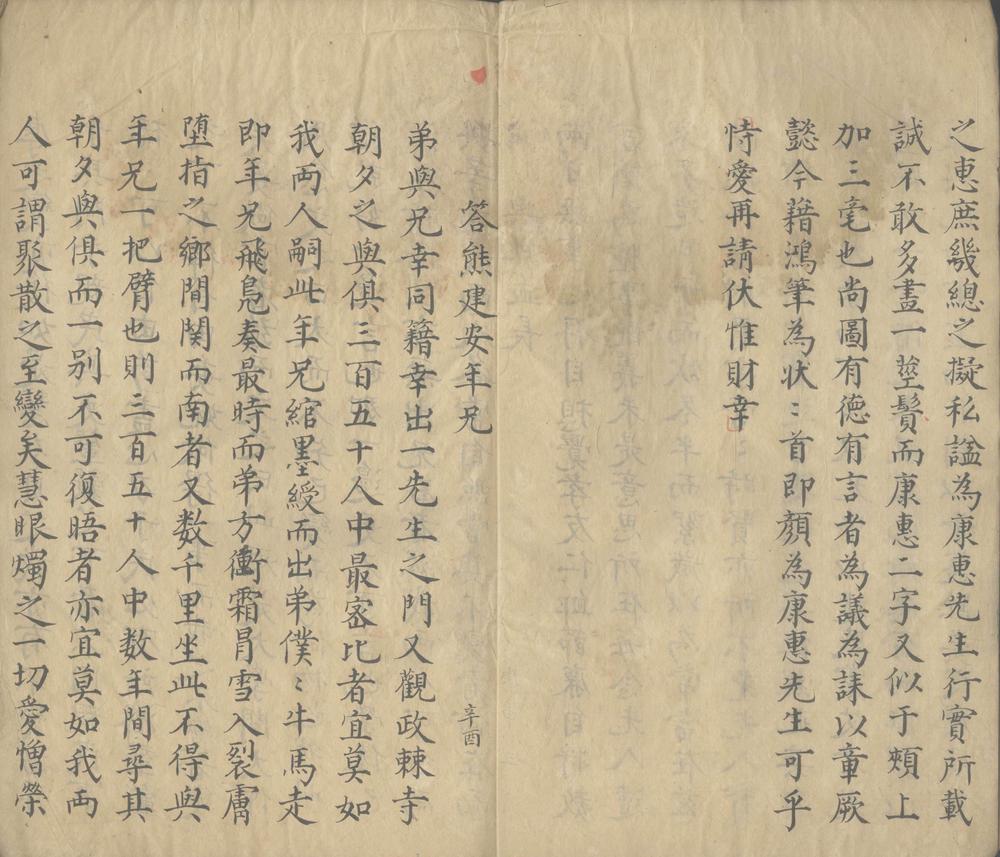 之惠庶幾總之擬私諡為康惠先生行實所載
誠不敢多盡一莖鬢而康惠二字又似于頰上
加三毫也尚圖有德有言者為議為誄以章厥
懿今藉鴻筆為状〻首即顏為康惠先生可乎
恃愛再請伏惟財幸
答熊建安年兄 辛酉
弟與兄幸同籍幸出一先生之門又觀政棘寺
朝夕之與俱三百五十人中最宻比者宜莫如
我两人嗣此年兄綰墨綬而出弟僕〻牛馬走
即年兄飛凫奏最時而弟方衝霜冒雪入裂膚
堕指之鄉間関而南者又数千里坐此不得與
年兄一把臂也則三百五十人中数年間尋其
朝夕與俱而一别不可復晤者亦宜莫如我两
人可謂聚散之至變矣慧眼燭之一切愛憎榮